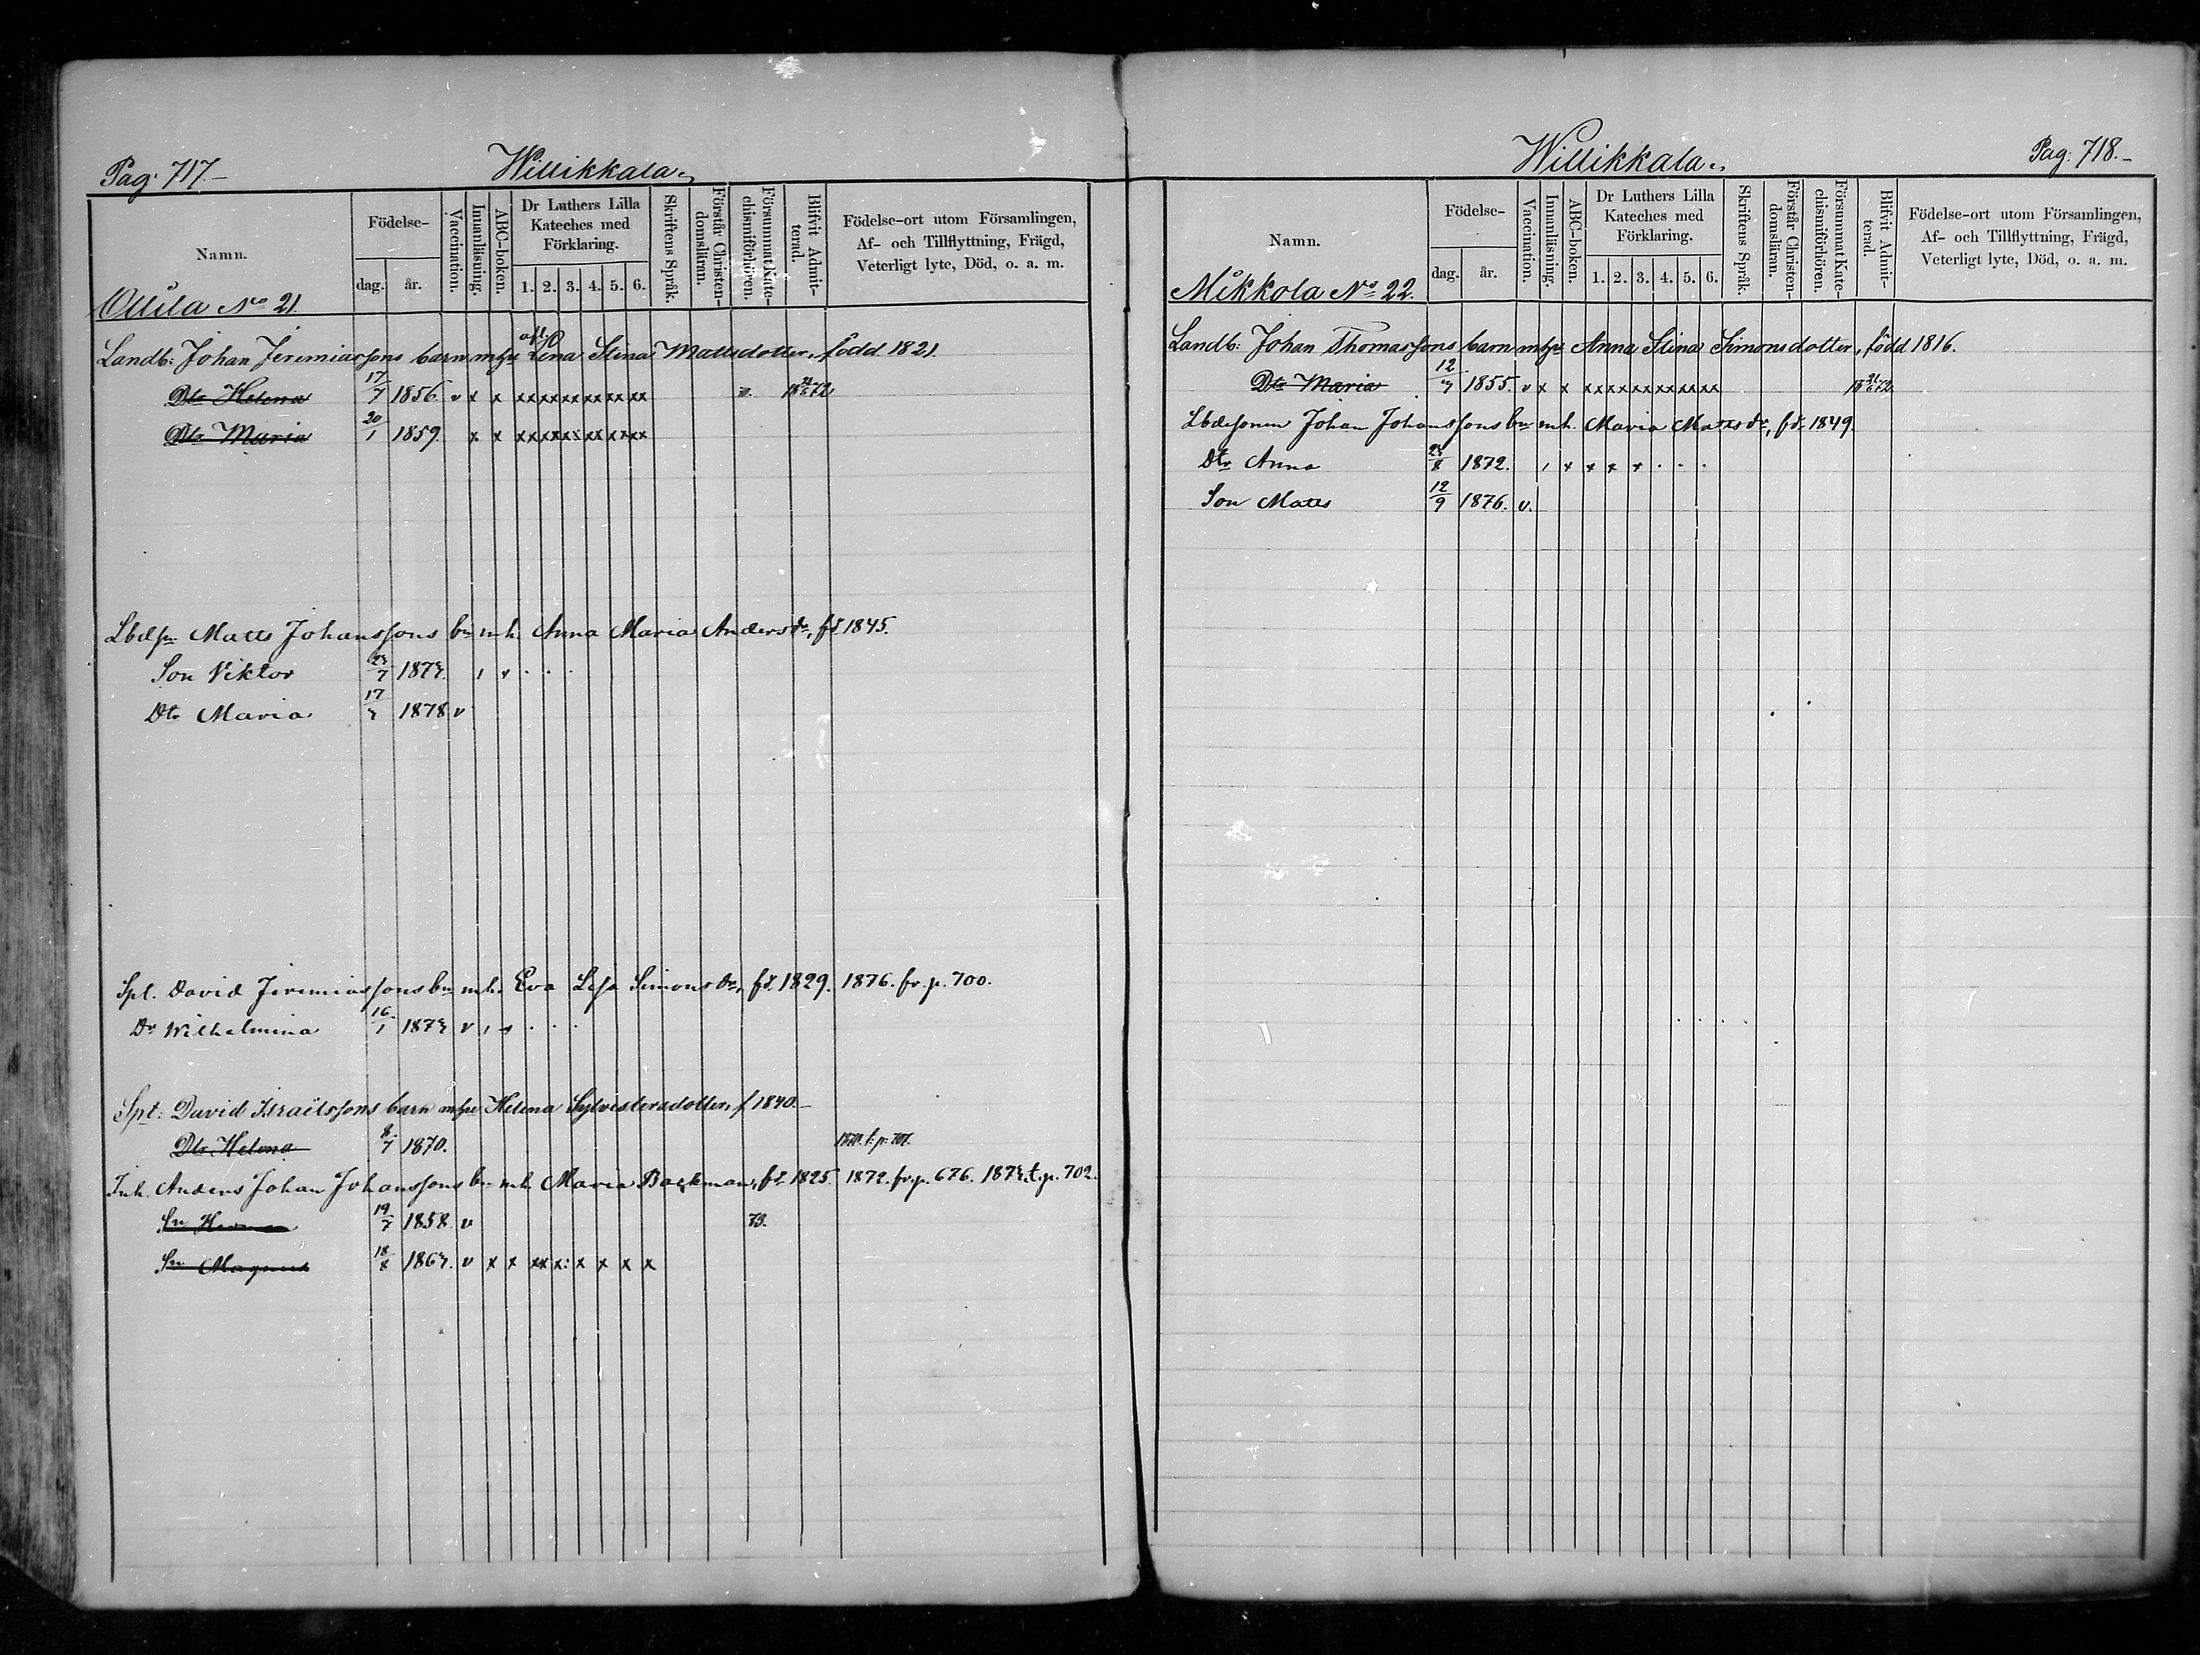 Pag: 717.–
Willikkala.
Namn.
Födelse-
dag.
år.
Vaccination.
Innanläsning.
ABC-boken.
Dr Luthers Lilla Kateches med Förklaring.
1. 2. 3. 4. 5. 6.
Skriftens Språk.
Förstår Christendomsläran.
Försummat Katechismiförhören.
Blifvit Admitterad.
Födelse-ort utom Församlingen,
Af- och Tillflyttning, Frägd,
Veterligt lyte, Död, o. a. m.
Ollila No 21.
Landb: Johan Jeremiassons barn mhu Lena Stina Mattsdotter, född 1821.
Dtr Helena 17/7 1856. v x x xx xx xx xx xx xx
Dtr Maria 20/1 1859. x x xx xx xx xx xx xx
Lbdsn Matts Johanssons bn m.h. Anna Maria Andersdr, fd. 1845.
Son Viktor 23/7 1873.
Dtr Maria 17/3 1878 v
Spt. David Jeremiassons bn m.h. Eva Lisa Simonsdr, fd. 1829. 1876. fr. p. 700.
Dr Wilhelmina 16/1 1873 v
Spt: David Israëlssons barn mhu Helena Sylvestersdotter, f 1840.–
Dtr Helena 8/7 1870. 1870. t. p. 707.
Inh. Anders Johan Johanssons bn m.h. Maria Backman, fd. 1825. 1872. fr. p. 676. 1873. t. p. 702.
Sn Herman 19/7 1858. v 73.
Sn Magnus 18/8 1863. v x x xx x: x x x x
Willikkala.
Pag: 718.–
Namn.
Födelse-
dag.
år.
Vaccination.
Innanläsning.
ABC-boken.
Dr Luthers Lilla Kateches med Förklaring.
1. 2. 3. 4. 5. 6.
Skriftens Språk.
Förstår Christendomsläran.
Försummat Katechismiförhören.
Blifvit Admitterad.
Födelse-ort utom Församlingen,
Af- och Tillflyttning, Frägd,
Veterligt lyte, Död, o. a. m.
Mikkola No 22.
Landb: Johan Thomassons barn mhu Anna Stina Simonsdotter, född 1816.
Dtr Maria 12/3 1855. v x x xx xx xx xx xx xx
Lbdesonen Johan Johanssons bn m.h. Maria Mattsdr, fd. 1849.
Dtr Anna 23/8 1872.
Son Matts 12/9 1876. v.